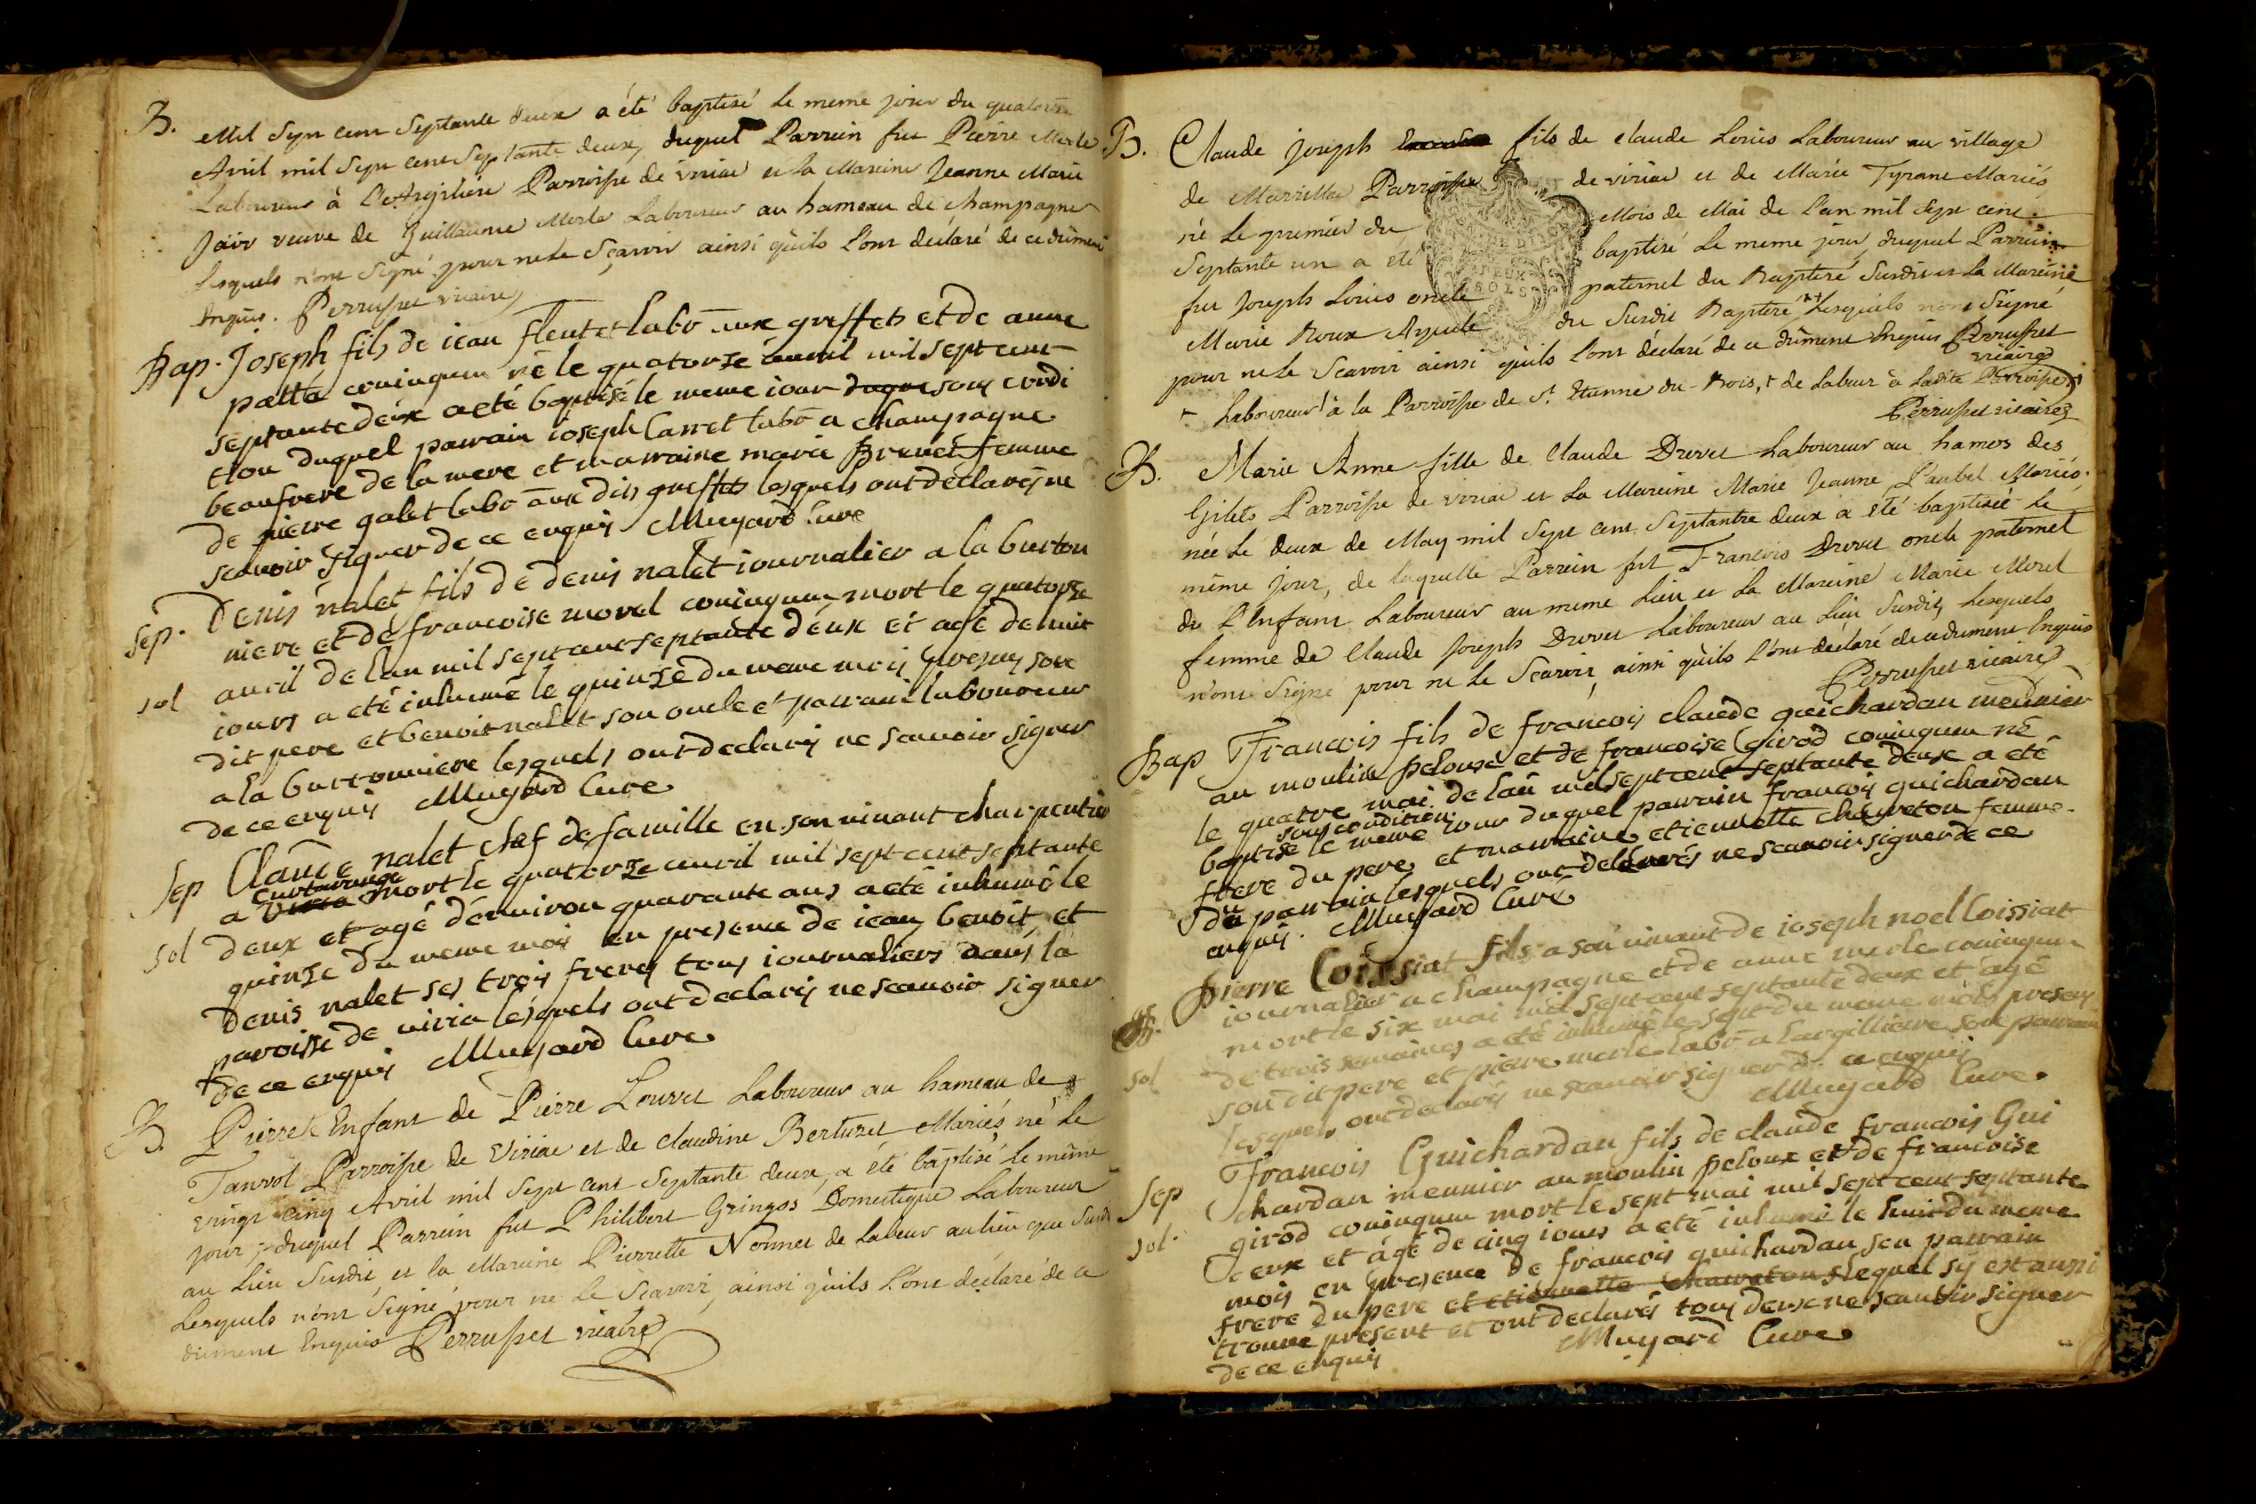 B. Mil Sept cent Septante deux a été baptisé le meme jour du quatorze
Avril mil Sept cent Septante deux, duquel Parrein fut Pierre Merle
Laboureur à L'Argilière Parroisse de viriac et la Mareine Jeanne Marie
Jair veuve de Guillaume Merle Laboureur au hameau de champagne
Lesquels n'ont Signé pour ne le Sçavoir ainsi qu'ils l'ont déclaré de ce dûment
enquis. Perrusset vicaire
Bap. Joseph fils de iean fleutet labo aux greffets et de anne
patta coniugum né le quatorse avril mil sept cent
septante deux a eté baptisé le meme iour duque sous condi
tion duquel parrain ioseph Carret labo a champagne
beaufrere de la mere et marraine marie Brevet femme
de pierre galet labo aux dits greffets lesquels ont declarés ne
scavoir signer de ce enquis Muyard Curé
Sep. Denis nalet fils de denis nalet iournalier a la burton
niere et de francoise morel coniugum mort le quatorze
sol avril de l'an mil sept cent septante deux et agé de huit
iours a eté inhumé le quinze du meme mois presens son
dit pere et benoit nalet son oncle et parrain laboureur
a la burtonniere lesquels ont declarés ne scavoir signer
de ce enquis Muyard Cure
Sep Claude nalet chef de famille en son vivant charpentier
curtarange
a viria mort le quatorze avril mil sept cent septante
sol deux et agé d'environ quarante ans a eté inhumé le
quinze du meme mois en presence de iean, benoit, et
denis nalet ses trois freres tous iournaliers dans la
paroisse de viria lesquels ont declarés ne scavoir signer
de ce enquis Muyard Cure
B. Pierre Enfant de Pierre Louvet Laboureur au hameau de
Tanvol Parroisse de Viriac et de claudine Berturet Mariés né le
vingt cinq Avril mil Sept cent Septante deux, a été baptisé le même
jour, duquel Parrein fut Philibert Gringos Domestique Laboureur
au Lieu Susdit, et la Mareine Pierrette Nonnet de Labeur au lieu que Susdit
Lesquels n'ont Signé pour ne le Scavoir, ainsi qu'ils l'ont déclaré de ce
dûment Enquis Perrusset vicaire
B. Claude joseph fils de claude Loriès Laboureur au village
de Parroisse de viriac et de Marie Tyrant Mariés
né le premier du Mois de Mai de l'an mil Sept cent
Septante un a été baptisé le meme jour, duquel Parrein
fut joseph Loriès oncle paternel du Baptisé Susdit et la Mareine
Marie Roux Ayeule du Susdit Baptisé Lesquels n'ont Signé
pour ne le Scavoir ainsi qu'ils l'ont déclaré de ce dûment Enquis Perrusset
vicaire
+ Laboureur à la Parroisse de St. Etienne du-Bois, + de Labeur à Ladite Parroisse
Perrusset vicaire
B. Marie Anne fille de Claude Drevet Laboureur au hameau des
Gilets Parroisse de viriac et la Mareine Marie Jeanne Paubel Mariés
née le deux de May mil Sept cent Septantre deux a été baptisée le
même jour, de laquelle Parrein fut Francois Drevet oncle paternel
de L'Enfant Laboureur au meme Lieu et la Mareine Marie Morel
femme de Claude Joseph Drevet Laboureur au Lieu Susdit, Lesquels
n'ont Signé pour ne le Scavoir, ainsi qu'ils l'ont declaré de ce dument Enquis
Perrusset vicaire
Bap Francois fils de francois claude guichardan meunier
au moulin pelouxe et de francoise girod coniugum né
le quatre mai de l'an mil sept cent septante deux a eté
sous condition
baptise le meme iour duquel parrain francois guichardan
frere du pere et marraine etiennette chavreton femme
du parrain lesquels ont declarés ne scavoir signer de ce
enquis. Muyard Curé
Pierre Coissiat fils a son vivant de ioseph noel Coissiat
iournalier a champagne et de anne merle coniugum
mort le six mai mil sept cent septante deux et agé
de trois semaines a eté inhumé le sept du meme mois presens
sol son dit pere et pierre merle labo a largilliere son parrain
lesquels ont declarés ne scavoir signer de ce enquis
Muyard Cure
Sep Francois Guichardan fils de claude francois Gui
chardan meunier au moulin peloux et de francoise
sol. girod coniugum mort le sept mai mil sept cent septante
deux et agé de cinq iours a eté inhumé le huit du meme
mois en presence de francois guichardan son parrain
frere du pere et etiennette chavreton lequel sy est aussi
trouve present et ont declarés tous deux ne scavoir signer
de ce enquis Muyard Cure